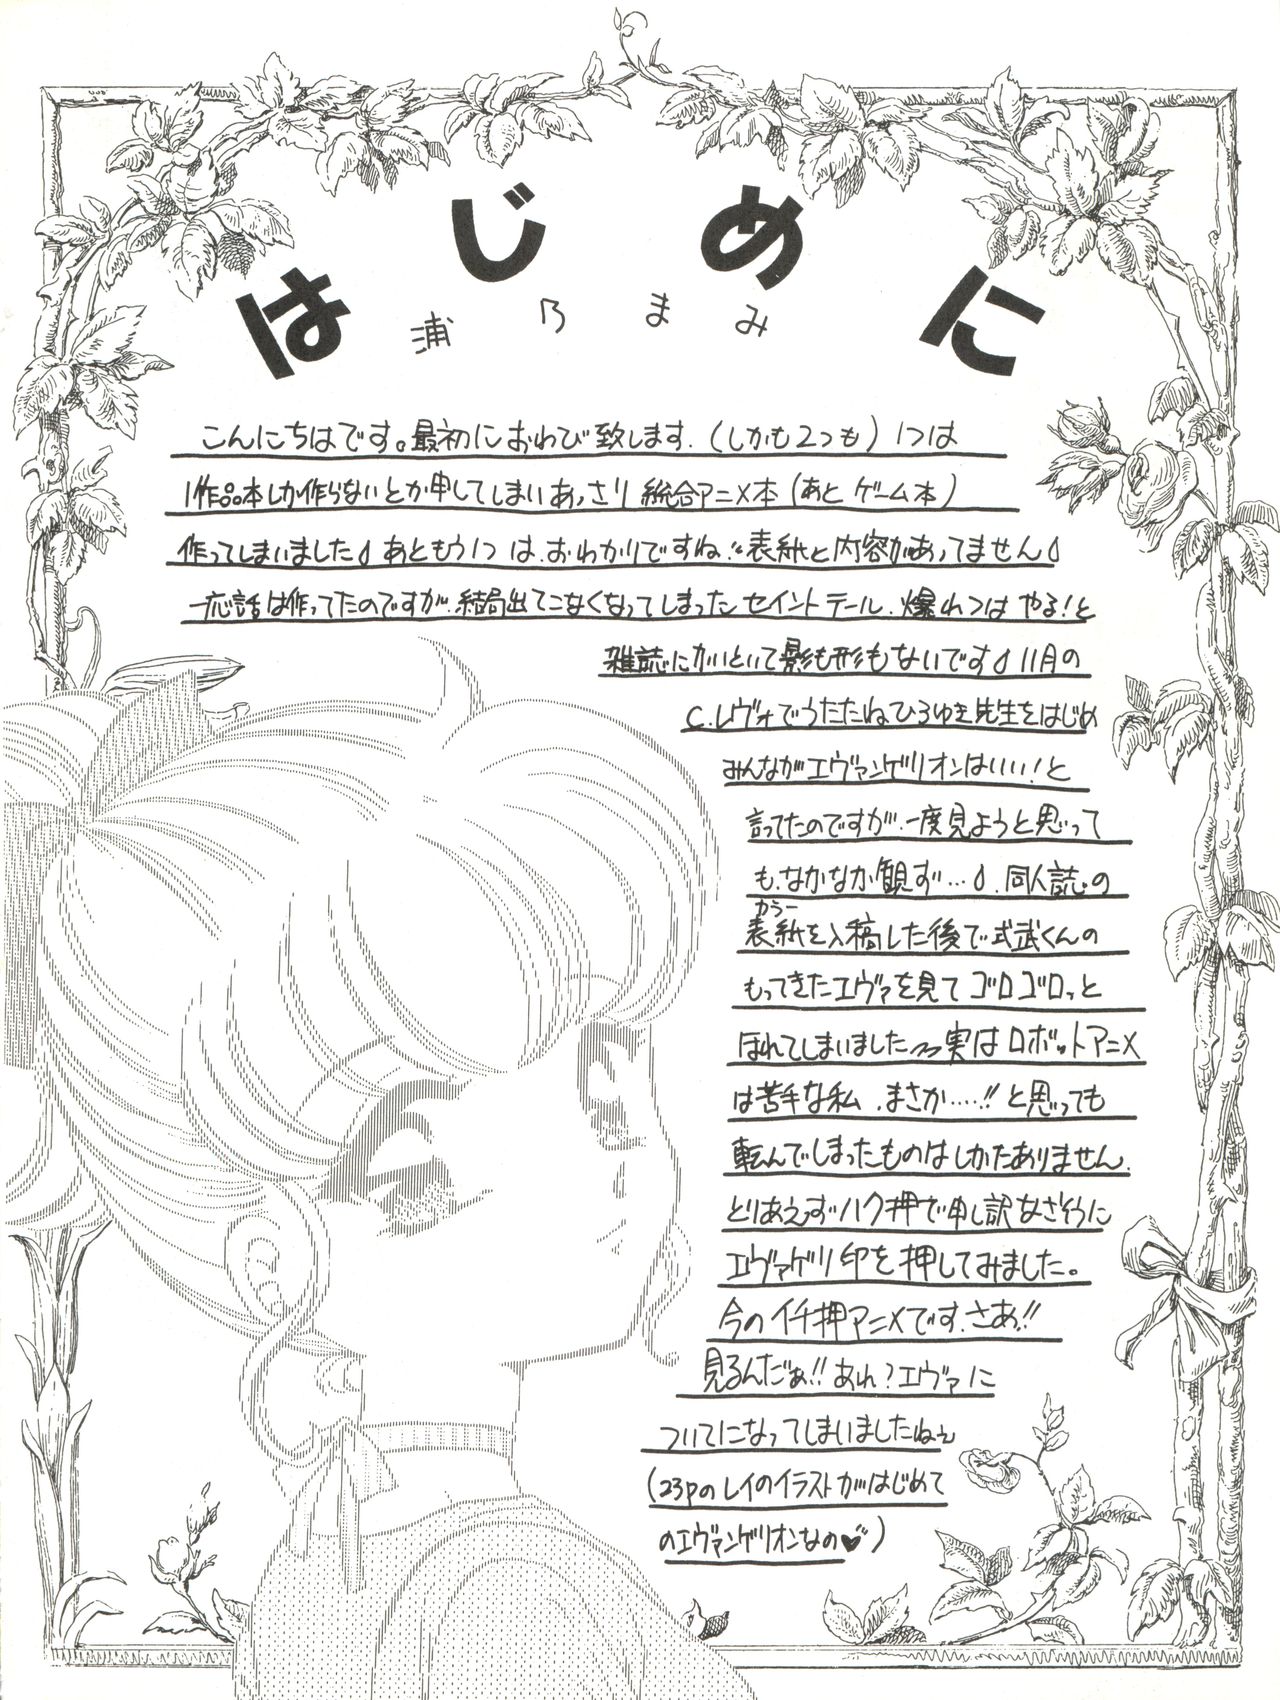 はじめに
浦乃まみ
こんにちはです。最初におわび致します.(しかも2つも)1つは
1作品本しか作らないとか申してしまいあっさり総合アニメ本(あとゲーム本)
作ってしまいました あともう1つは、おわかりですね!!表紙と内容があってません
一応話は作ってたのですが、結局出てこなくなってしまったセイントテール、爆れつはやる!と
雑誌にかいといて影も形もないです 11月の
C.レヴォでうたたねひろゆき先生をはじめ
みんながエヴァンゲリオンはいい!と
言ってたのですが、一度見ようと思って
も、なかなか観ず…、同人誌の
カラー
表紙を入稿した後で式武くんの
もってきたエヴァを見てゴロゴロっと
ほれてしまいました〜実はロボットアニメ
は苦手な私、まさか……!!と思っても
転んでしまったものはしかたありません.
とりあえずハク押で申し訳なさそうに
エヴァゲリ印を押してみました。
今のイチ押アニメです.さあ!!
見るんだぁ!!あれ?エヴァに
ついてになってしまいましたねぇ
(23pのレイのイラストがはじめて
のエヴァンゲリオンなの♥)